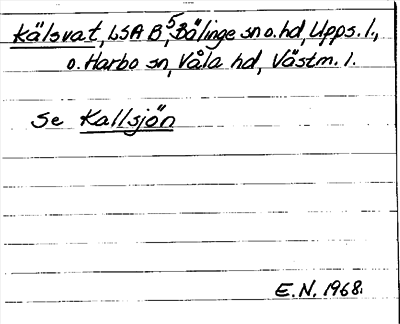 Kälsvat, LSA B5, Bälinge sn o. hd, Upps. l.,
o. Harbo sn, Våla hd, Västm. l.
Se Kallsjön
E.N. 1968.